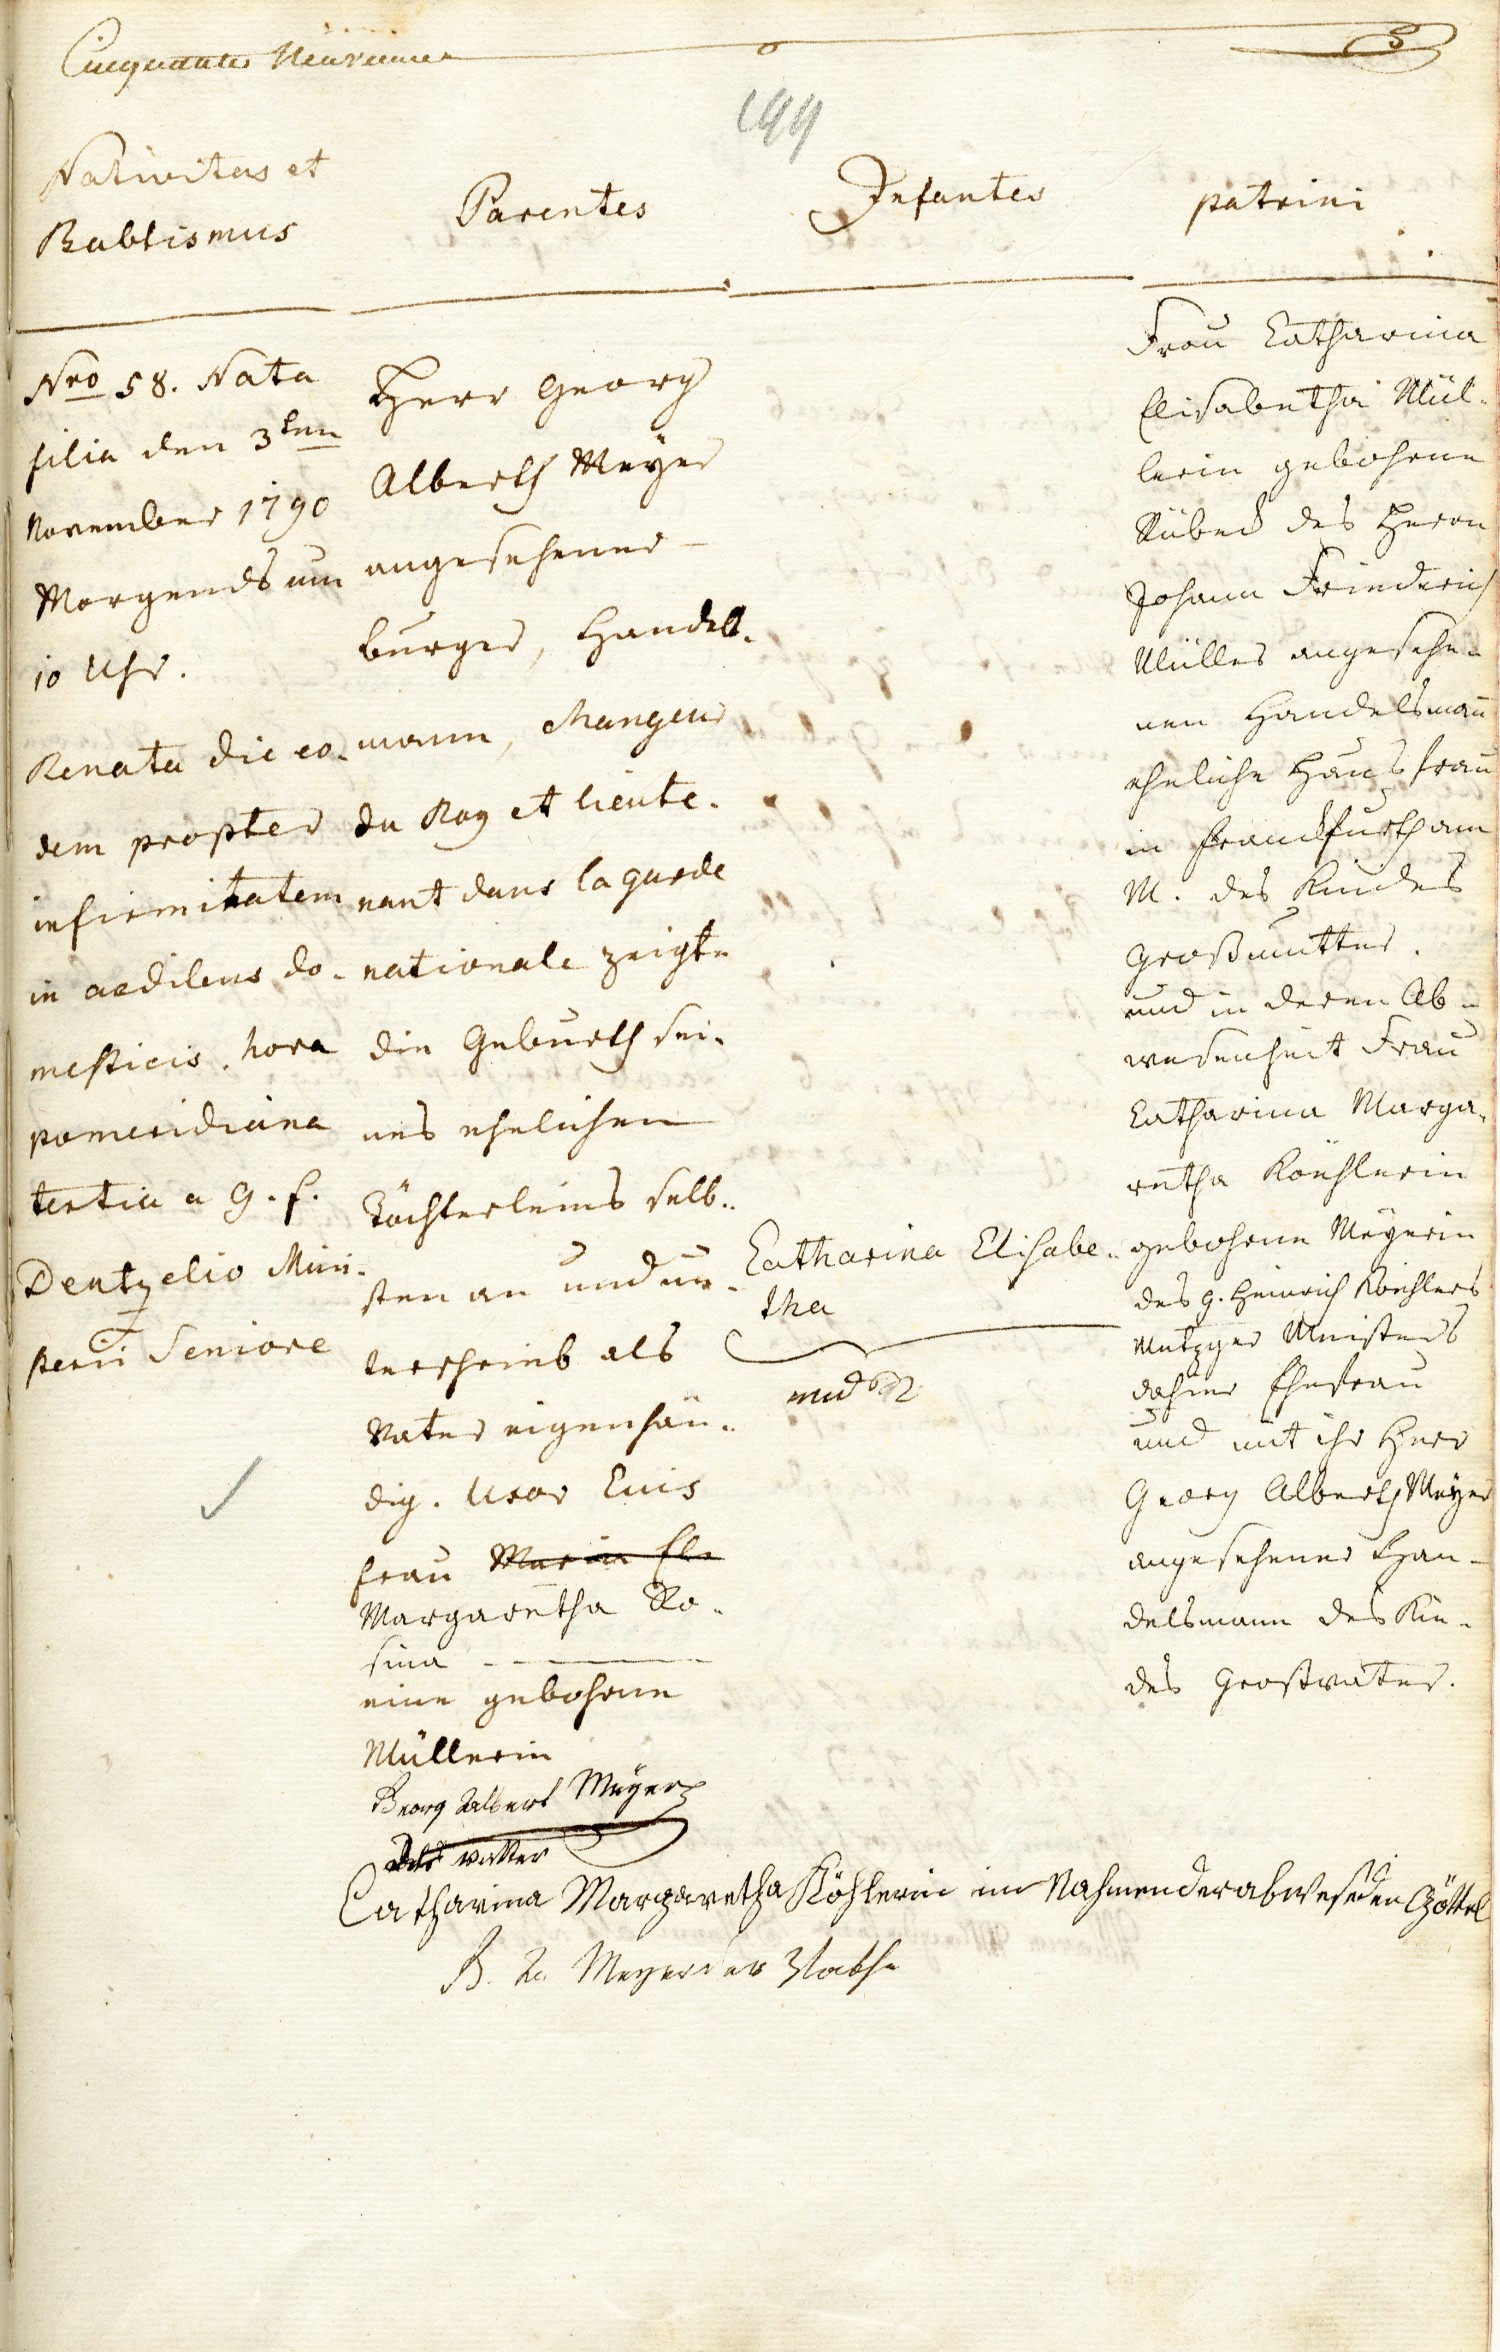 Cinquante Neuvieme
199
Nativitas et
Babtismus
Parentes
Infantes
patrini
Nro 58. Nata
filia den 3ten
November 1790
Morgends um
10 Uhr.
Renata die eo-
dem propter
infirmitatem
in aedibus do-
mesticis. hora
pomeridiana
tertia a G. f.
Dentzelio Mini-
sterii Seniore
Herr Georg
Alberth Meyer
angesehener
burger, Handels-
mann, Mangeur
du Roy et lieute-
nant dans la garde
nationale zeigte
die Geburth sei-
nes ehelichen
Töchterleins selb-
sten an und un-
terschrieb als
Vater eigenhän-
dig. Uxor Eius
frau Maria El-
Margaretha Ro-
sina
eine gebohrne
Müllerin
Georg Albert Meyer
vatter
Catharina Elisabe-
tha
Frau Catharina
Elisabetha Mül-
lerin gebohrne
des Herrn
Johann Friederich
Müller angesehe-
nen Handelsmann
eheliche Hausfrau
in Franckfurth am
M. des Kindes
Großmutter.
und in deren Ab-
wesenheit Frau
Catharina Marga-
retha Koehlerin
gebohrne Meyerin
des g. Heinrich Koehlers
Metzger Meisters
dahier Ehefrau
und mit ihr Herr
Georg Alberth Meyer
angesehener Han-
delsmann des Kin-
des Großvater.
Catharina Margaretha Köhlerin im Nahmen der abwesenden Göttel
G. A. Meyer der